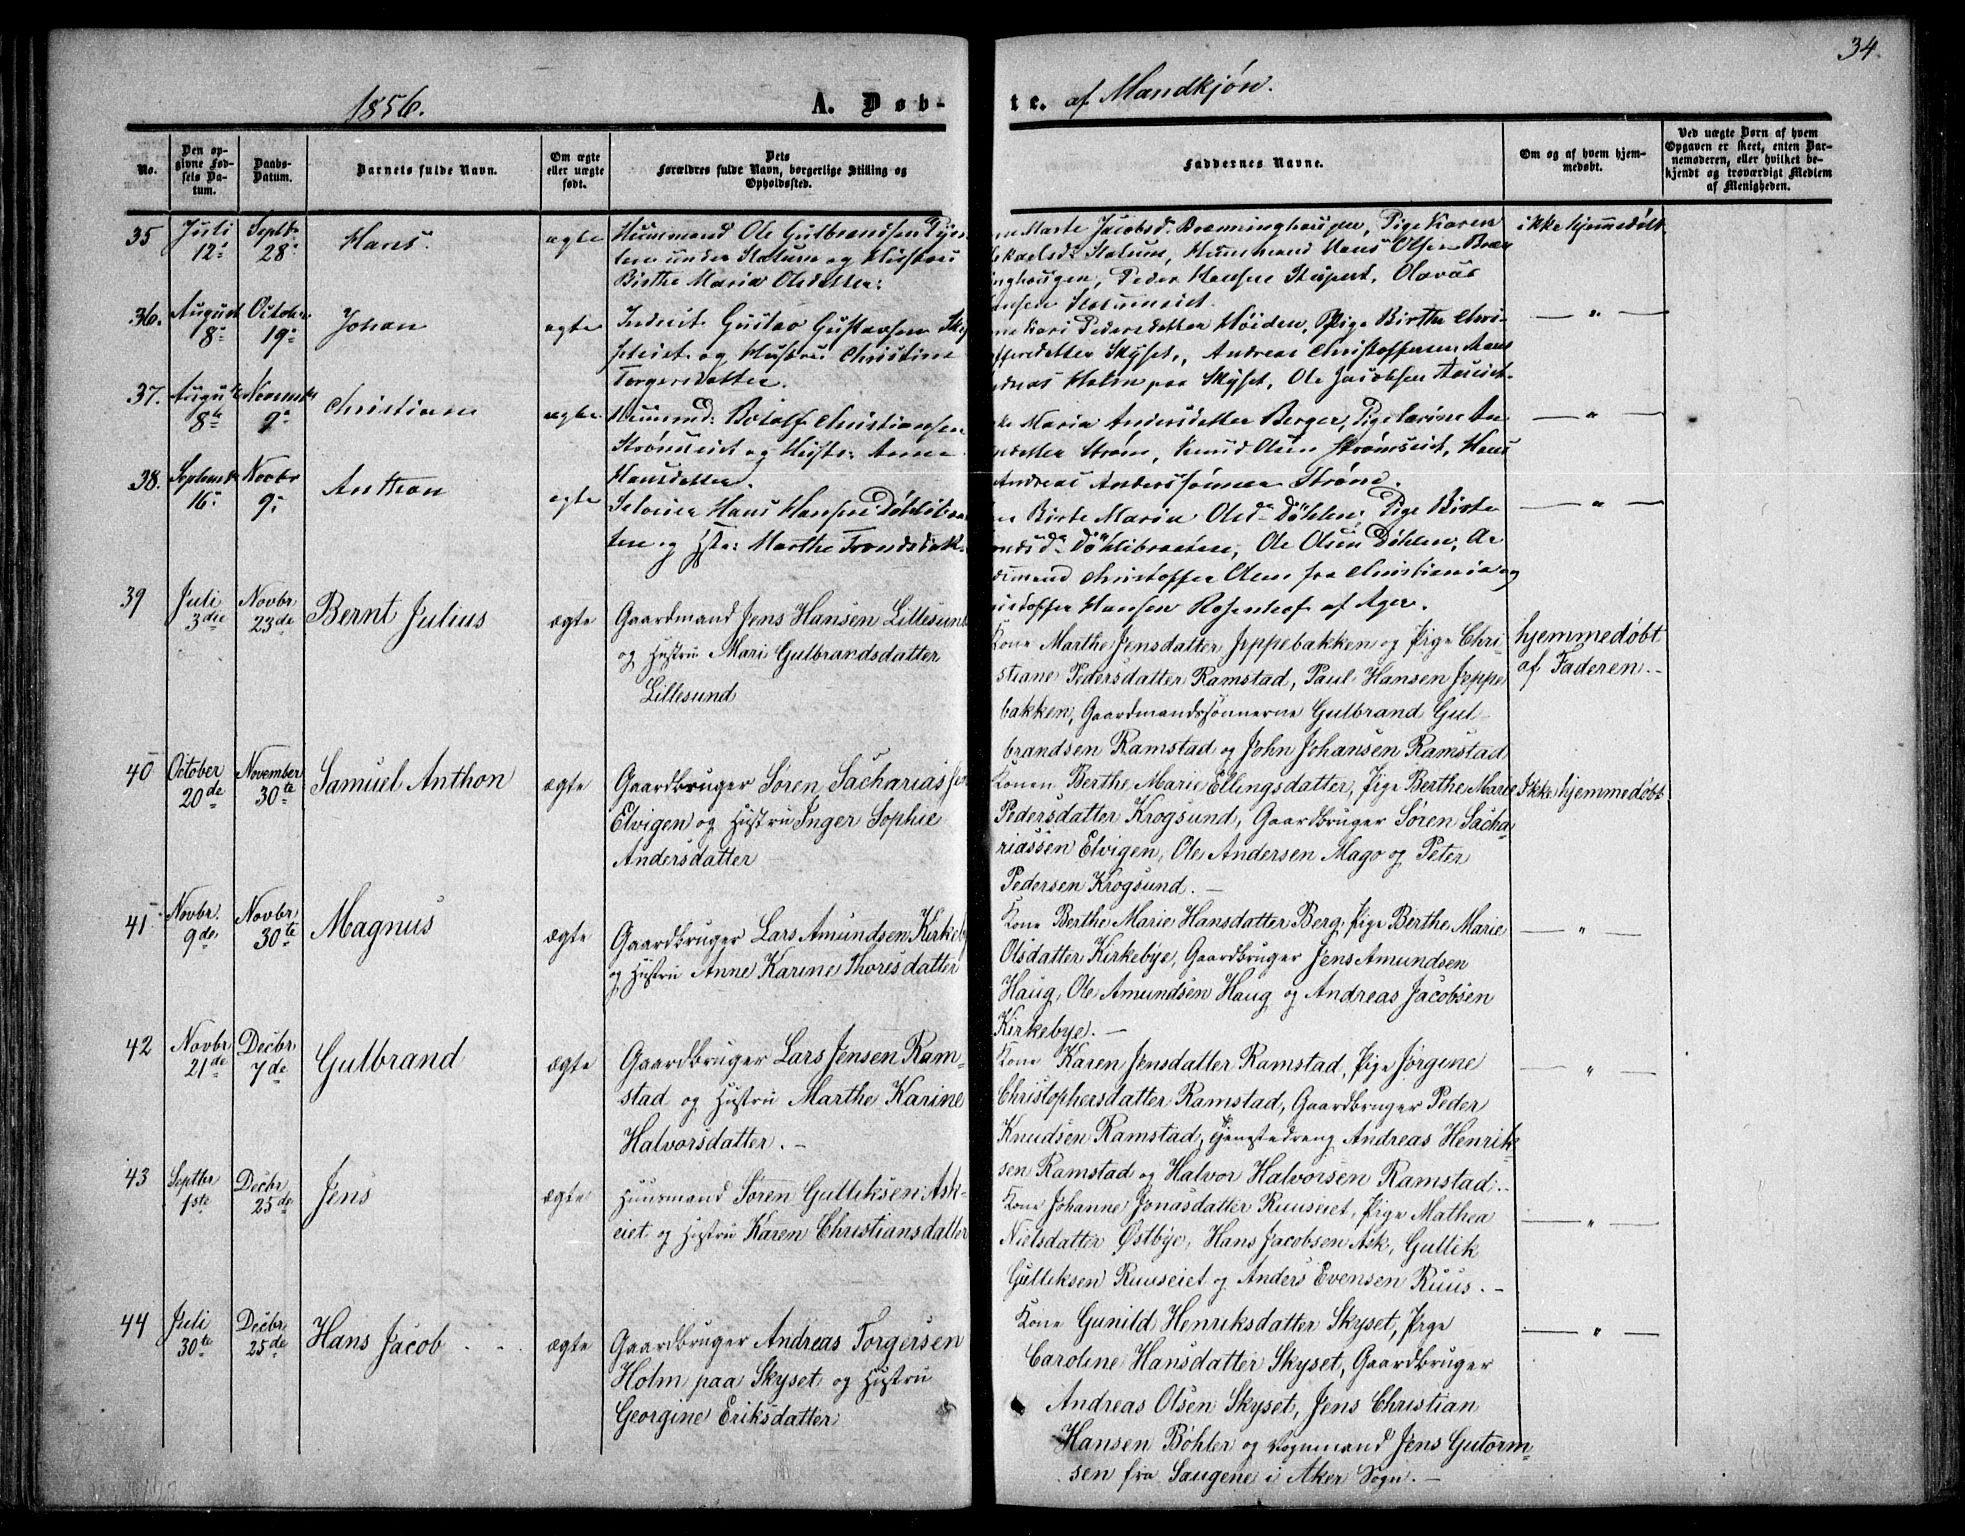 34.
1856.
A. Døb-
te. af Mandkjøn.
No.
Den op-
givne Fød-
sels Da-
tum.
Daabs-
Datum.
Barnets fulde Navn.
Om ægte
eller uægte
født.
Dets
Forældres fulde Navn, borgerlige Stilling og
Opholdssted.
Faddernes Navne.
Om og af hvem hjem-
medøbt.
Ved uægte Børn af hvem
Opgaven er skeet, enten Bar-
nemoderen, eller hvilket be-
kjendt og troværdigt Medlem
af Menigheden.
35
Juli
12
Septbr
28
Hans.
ægte
Huusmand Ole Gulbrandsen
under og Hustru
Birthe Maria Olsdatter.
Marte Jacobsd. Pige Karen
Huusmand Hans Olsen Bræn
inghaugen, Peder Hansen Olavus
ikke hjemmedøbt
36.
August
8
October
19
Johan
ægte
Inderst Gustav Gustavsen
og Hustru Christine
Torgersdatter.
Kari Pedersdatter Høiden, Pige Birthe Chri-
Skyset, Andreas Christoffersen
Holm paa Skyset, Ole Jacobsen
— " —
37.
August
8de
9
Christian
ægte
Huusmd: Botolf Christiansen
Strømseiet og Hustr: Anne
Hansdatter.
Maria Andersdatter Berger, Pige Carine An
Strøm, Knud Olsen Strømseiet, Hans
Andreas Anderssønner Strøm.
— " —
38.
16
Novbr
9
Anthon
ægte
Selveier Hans Hansen Døhlibraa
ten og Hstr: Marthe Trondsdatt.
Birte Maria Olsd. Døhlen, Pige Birte
Døhlibraaten, Ole Olsen Døhlen,
Christoffer Olsen fra Christiania og
Hansen Rosenhof af Ager.
— " —
39
Juli
3die
Novbr
23de
Bernt Julius
ægte
Gaardmand Jens Hansen Lillesund
og Hustru Mari Gulbrandsdatter
Lillesund
Kone Marthe Jensdatter Jeppebakken og Pige Chri-
stiane Pedersdatter Ramstad, Paul Hansen Jeppe
bakken, Gaardmandssønnerne Gulbrand Gul-
brandsen Ramstad og John Johansen Ramstad
hjemmedøbt
af Faderen.
40
October
20de
November
30te
Samuel Anthon
ægte
Gaardbruger Søren Sachariassen
Elvigen og Hustru Inger Sophie
Andersdatter
Konen Berthe Marie Ellingsdatter, Pige Berthe Marie
Pedersdatter Krogsund, Gaardbruger Søren Sacha-
riassen Elvigen, Ole Andersen Mago og Peter
Pedersen Krogsund. —
Ikke hjemmedøbt
41
Novbr.
9de
Novbr
30te
Magnus
ægte
Gaardbruger Lars Amundsen Kirkeby
og Hustru Anne Karine Thoresdatter
Kone Berthe Marie Hansdatter Berg, Pige Berthe Marie
Olsdatter Kirkebye, Gaardbruger Jens Amundsen
Haug, Ole Amundsen Haug og Andreas Jacobsen
Kirkebye. —
— " —
42
Novbr
21de
Decbr
7de
Gulbrand
ægte
Gaardbruger Lars Jensen Ram-
stad og Hustru Marthe Karine
Halvorsdatter. —
Kone Karen Jensdatter Ramstad, Pige Jørgine
Christophersdatter Ramstad, Gaardbruger Peder
Knudsen Ramstad, Tjenstedreng Andreas Henrik-
sen Ramstad og Halvor Halvorsen Ramstad. —
— " —
43
Septbr
1ste
Decbr
25de
Jens
ægte
Huusmand Søren Gulliksen Ask-
eiet og Hustru Karen Christiansdatter
Kone Johanne Jonasdatter Ruuseiet, Pige Mathea
Nielsdatter Østbye, Hans Jacobsen Ask, Gullik
Gulliksen Ruuseiet og Anders Evensen Ruus. —
— " —
44
Juli
30te
Decbr
25de
Hans Jacob
ægte
Gaardbruger Andreas Torgersen
Holm paa Skyset og Hustru
Georgine Eriksdatter
Kone Gunild Henriksdatter Skyset, Pige
Caroline Hansdatter Skyset, Gaardbruger
Andreas Olsen Skyset, Jens Christian
Hansen Bøhler og Vognmand Jens Gutorm-
sen fra Saugene i Aker Sogn. —
— " —